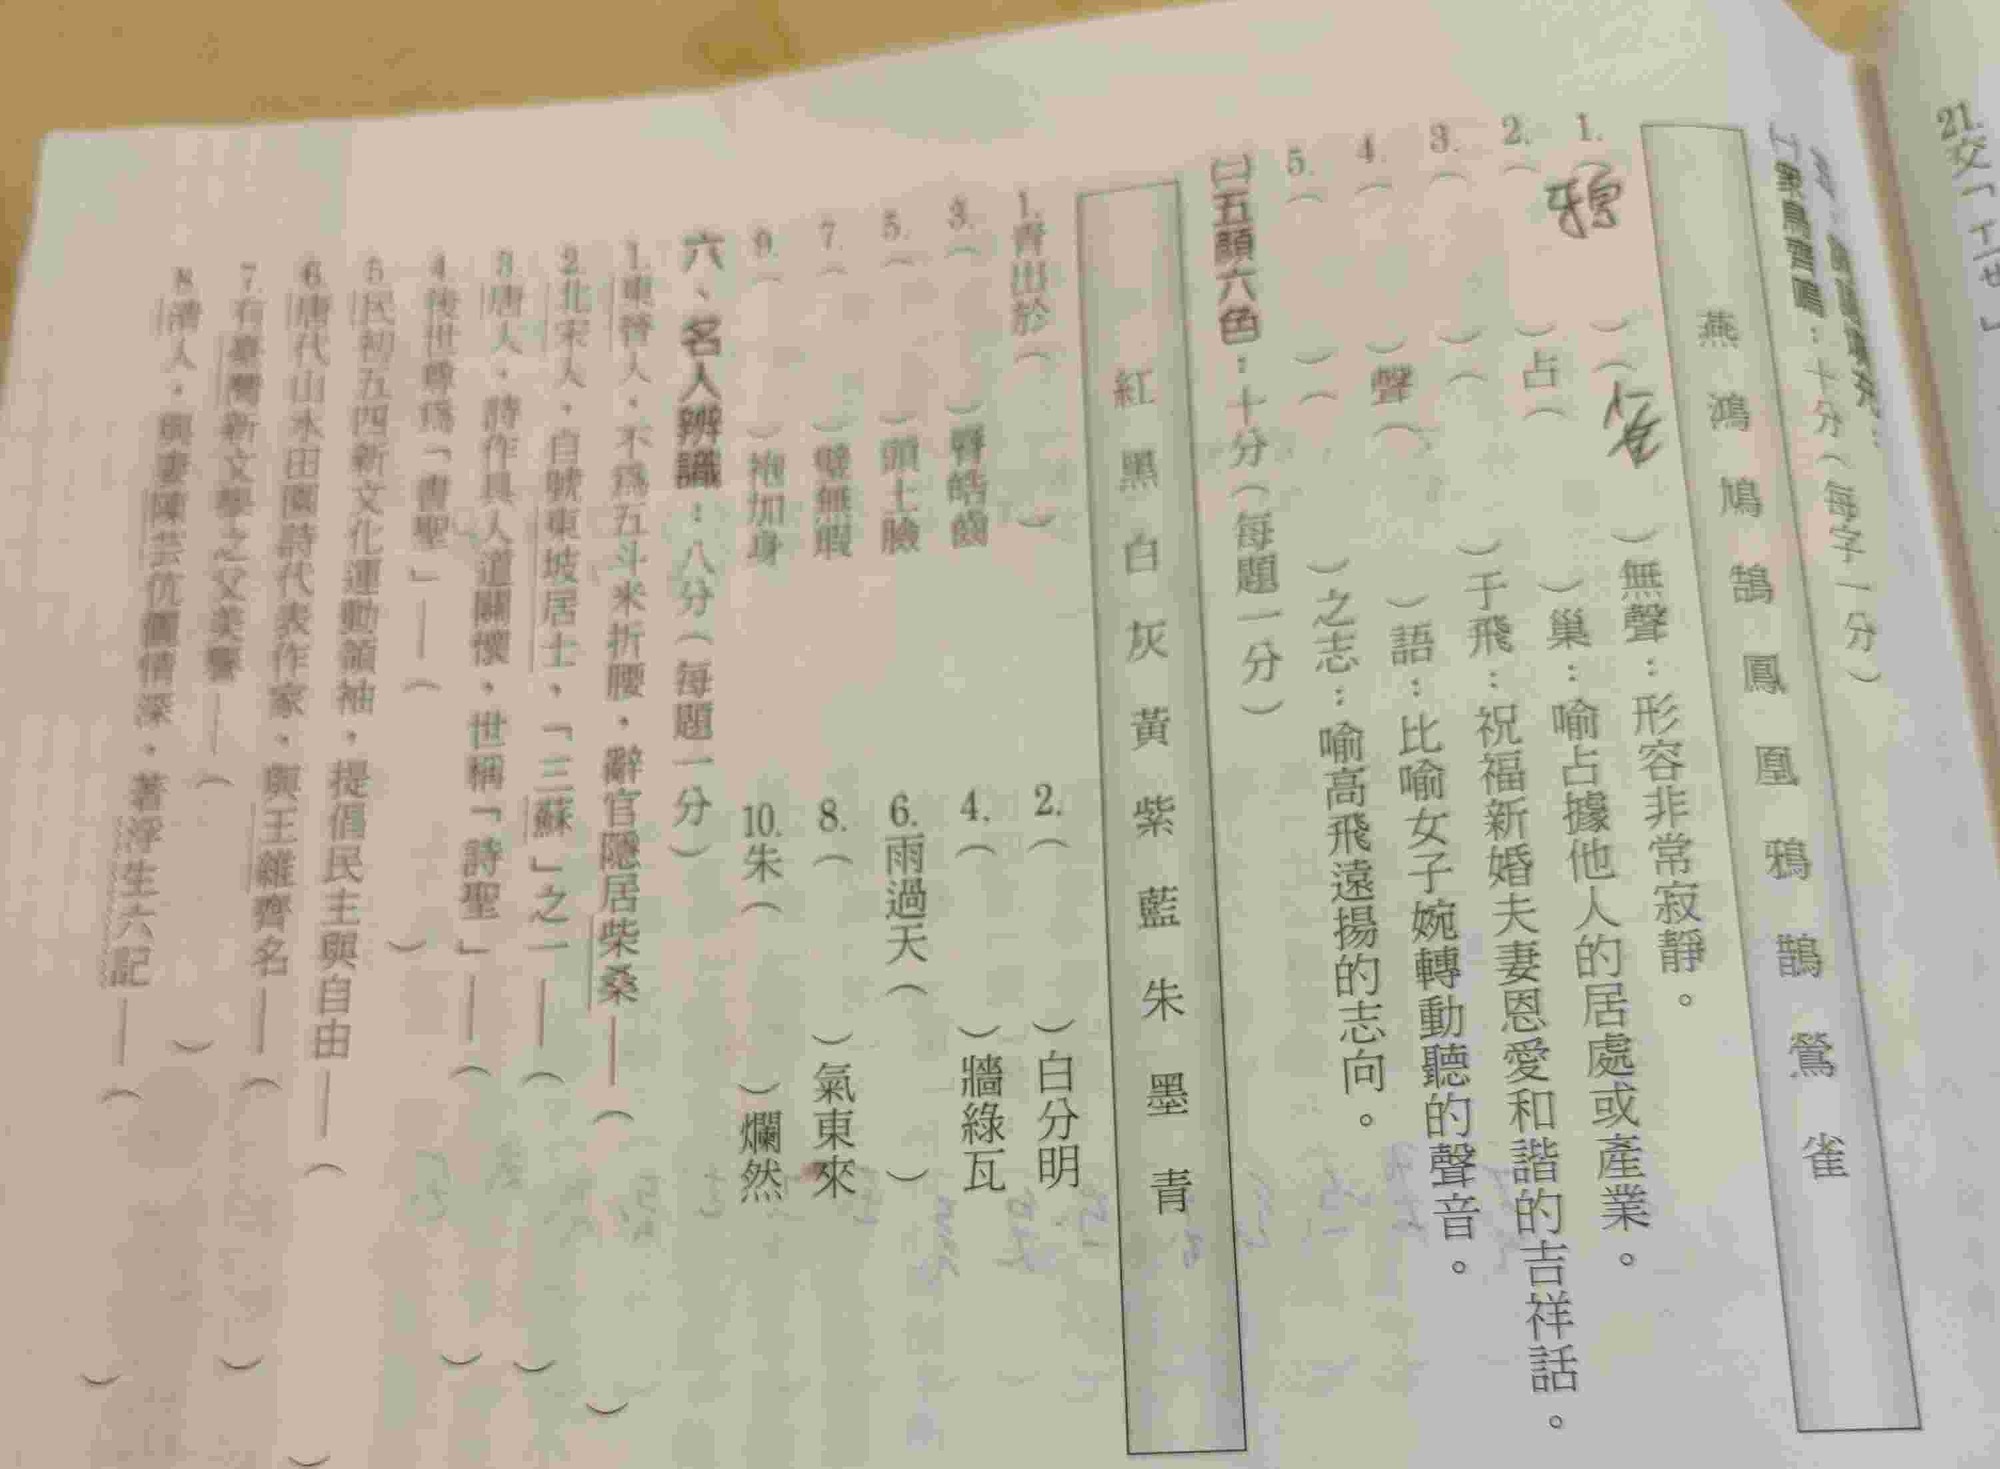 21.交「ㄒㄧㄝ」
㈠眾鳥齊鳴：十分（每字一分）
燕 鴻 鳩 鵠 鳳 凰 鴉 鵲 鶯 雀
1.（鴉）（雀）無聲：形容非常寂靜。
2.（）占（）巢：喻占據他人的居處或產業。
3.（）（）于飛：祝福新婚夫妻恩愛和諧的吉祥話。
4.（）聲（）語：比喻女子婉轉動聽的聲音。
5.（）（）之志：喻高飛遠揚的志向。
㈡五顏六色：十分（每題一分）
紅 黑 白 灰 黃 紫 藍 朱 墨 青
1.青出於（）
2.（）白分明
3.（）脣皓齒
4.（）牆綠瓦
5.（）頭土臉
6.雨過天（）
7.（）璧無瑕
8.（）氣東來
9.（）袍加身
10.朱（）爛然
六、名人辨識：八分（每題一分）
1.東晉人，不為五斗米折腰，辭官隱居柴桑——（）
2.北宋人，自號東坡居士，「三蘇」之一——（）
3.唐人，詩作具人道關懷，世稱「詩聖」——（）
4.後世尊為「書聖」——（）
5.民初五四新文化運動領袖，提倡民主與自由——（）
6.唐代山水田園詩代表作家，與王維齊名——（）
7.有臺灣新文學之父美譽——（）
8.清人，與妻陳芸伉儷情深，著浮生六記——（）